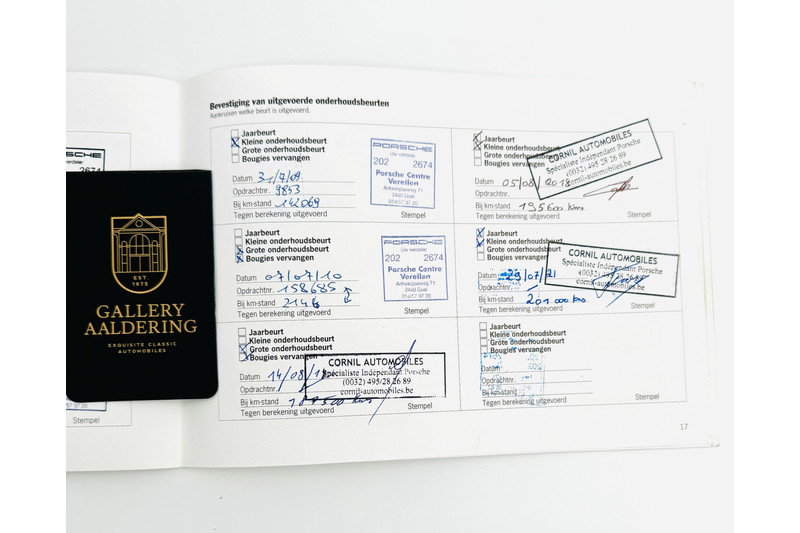 GALLERY
AALDERING
EST.
1975
EXQUISITE CLASSIC
AUTOMOBILES
Bevestiging van uitgevoerde onderhoudsbeurten
Aankruisen welke beurt is uitgevoerd.
Jaarbeurt
Kleine onderhoudsbeurt
Grote onderhoudsbeurt
Bougies vervangen
Datum 31/7/09
Opdrachtnr. 9853
Bij km-stand 142069
Tegen berekening uitgevoerd
Stempel
PORSCHE
Uw verdeler
202 2674
Porsche Centre
Verellen
Antwerpseweg 71
2440 Geel
014/57 97 20
Jaarbeurt
Kleine onderhoudsbeurt
Grote onderhoudsbeurt
Bougies vervangen
Datum 07/07/10
Opdrachtnr. 158685
Bij km-stand 2146
Tegen berekening uitgevoerd
Stempel
PORSCHE
Uw verdeler
202 2674
Porsche Centre
Verellen
Antwerpseweg 71
2440 Geel
014/57 97 20
Jaarbeurt
Kleine onderhoudsbeurt
Grote onderhoudsbeurt
Bougies vervangen
Datum 14/08/
Opdrachtnr.
Bij km-stand
Tegen berekening uitgevoerd
Stempel
CORNIL AUTOMOBILES
Spécialiste Indépendant Porsche
(0032) 495/28 26 89
cornil-automobiles.be
Jaarbeurt
Kleine onderhoudsbeurt
Grote onderhoudsbeurt
Bougies vervangen
Datum 05/08/2018
Opdrachtnr.
Bij km-stand 195600 kms
Tegen berekening uitgevoerd
Stempel
CORNIL AUTOMOBILES
Spécialiste Indépendant Porsche
(0032) 495 28 26 89
cornil-automobiles.be
Jaarbeurt
Kleine onderhoudsbeurt
Grote onderhoudsbeurt
Bougies vervangen
Datum 23/07/21
Opdrachtnr.
Bij km-stand 201.000 kms
Tegen berekening uitgevoerd
Stempel
CORNIL AUTOMOBILES
Spécialiste Indépendant Porsche
(0032) 495/28 26 89
cornil-automobiles.be
Jaarbeurt
Kleine onderhoudsbeurt
Grote onderhoudsbeurt
Bougies vervangen
Datum
Opdrachtnr.
Bij km-stand
Tegen berekening uitgevoerd
Stempel
17